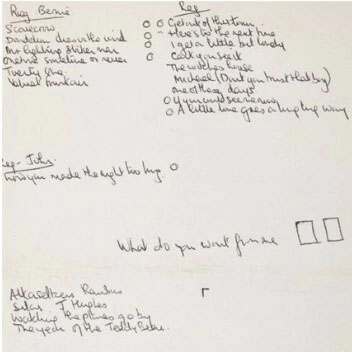 Reg Bernie
Scarecrow
Dandelion dies in the wind
Mr Lightning Striker man
one time sometime or never
Twenty one
Velvet fountain
Reg
Get out of this town
Here's to the next time
I get a little bit lonely
Can't you see it
The witches house
Michael (Don't you trust that boy)
one of these days
If you could see me now
A little love goes a long long way
Reg - John
how you made the night too long
What do you want from me
Alka seltzers
Sidney J Hughes
Watching the planes go by
The year of the Teddy Bear.